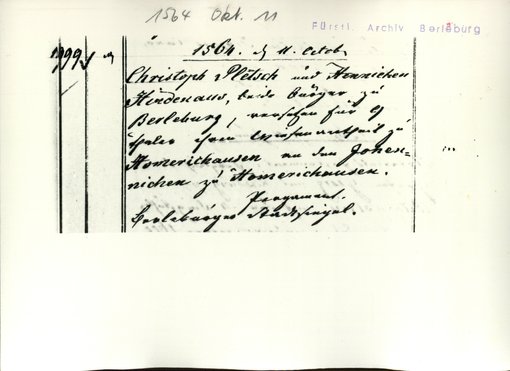 1564 Okt. 11
Fürstl. Archiv Berleburg
1564. d 11. Octob
Christoph Pletsch und Henrichen
Hindenaus, beide bürger zu
Berleburg, versetzen für
thaler ihren Wiesenantheil zu
Homerichausen an den Johen-
nichen zu Homerichausen.
Pergament.
Berleburger Stadtsiegel.